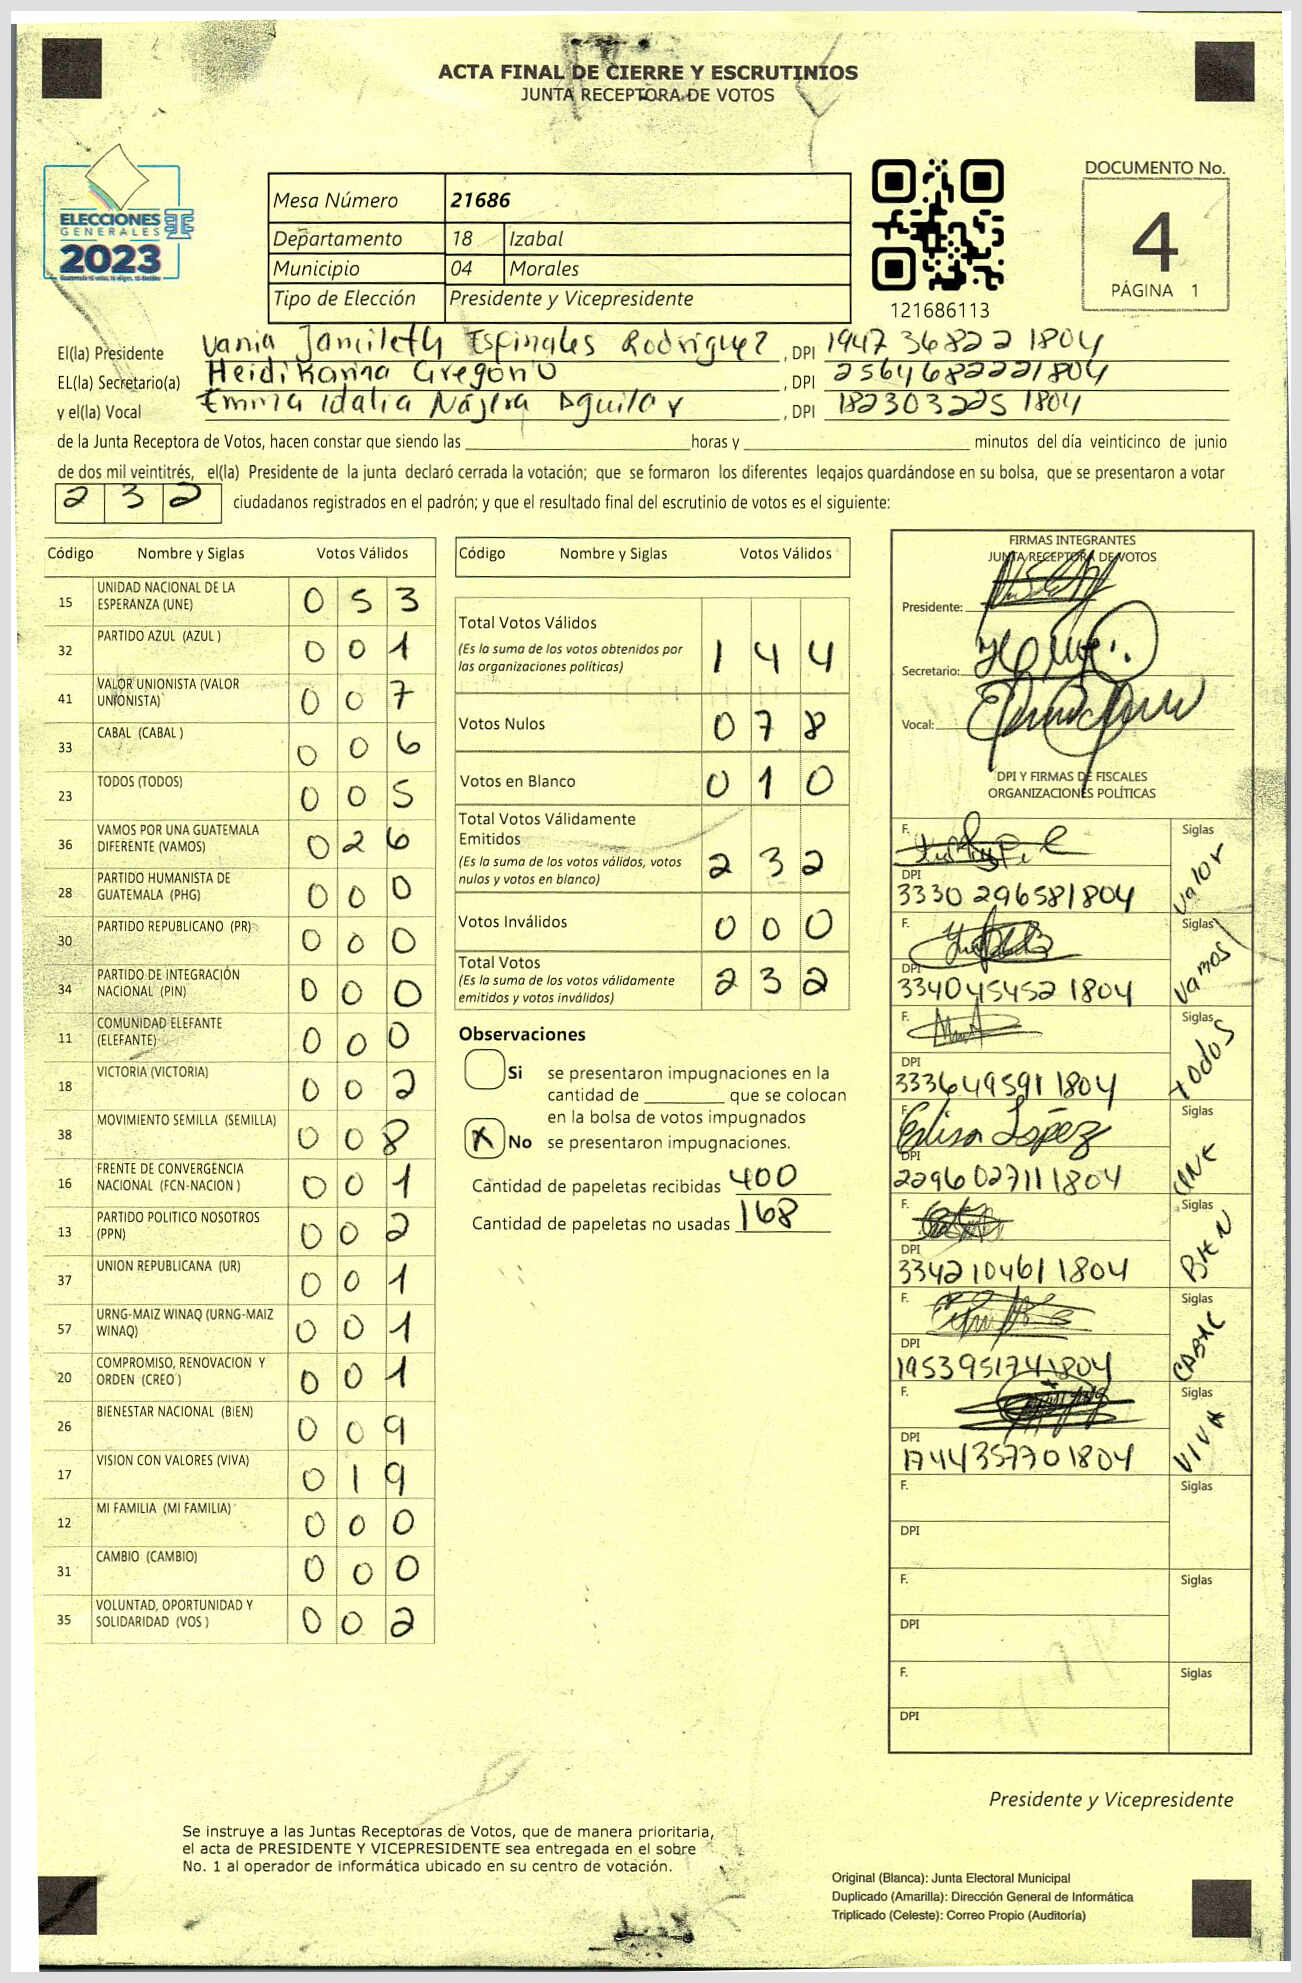 ACTA FINAL DE CIERRE Y ESCRUTINIOS
JUNTA RECEPTORA DE VOTOS
ELECCIONES
GENERALES
2023
Mesa Número 21686
Departamento 18 Izabal
Municipio 04 Morales
Tipo de Elección Presidente y Vicepresidente
121686113
DOCUMENTO No.
4
PÁGINA 1
El(la) Presidente Vania Jamileth Espinales Rodriguez, DPI 1947 36822 1804
EL(la) Secretario(a) Heidi Karina Gregorio, DPI 2564682221804
y el(la) Vocal Emma Idalia Nájera Aguilar, DPI 182303225 1804
de la Junta Receptora de Votos, hacen constar que siendo las horas y minutos del día veinticinco de junio
de dos mil veintitrés, el(la) Presidente de la junta declaró cerrada la votación; que se formaron los diferentes legajos guardándose en su bolsa, que se presentaron a votar
2 3 2 ciudadanos registrados en el padrón; y que el resultado final del escrutinio de votos es el siguiente:
Código Nombre y Siglas Votos Válidos
15 UNIDAD NACIONAL DE LA ESPERANZA (UNE) 0 5 3
32 PARTIDO AZUL (AZUL ) 0 0 1
41 VALOR UNIONISTA (VALOR UNIONISTA) 0 0 7
33 CABAL (CABAL ) 0 0 6
23 TODOS (TODOS) 0 0 5
36 VAMOS POR UNA GUATEMALA DIFERENTE (VAMOS) 0 2 6
28 PARTIDO HUMANISTA DE GUATEMALA (PHG) 0 0 0
30 PARTIDO REPUBLICANO (PR) 0 0 0
34 PARTIDO DE INTEGRACIÓN NACIONAL (PIN) 0 0 0
11 COMUNIDAD ELEFANTE (ELEFANTE) 0 0 0
18 VICTORIA (VICTORIA) 0 0 2
38 MOVIMIENTO SEMILLA (SEMILLA) 0 0 8
16 FRENTE DE CONVERGENCIA NACIONAL (FCN-NACION ) 0 0 1
13 PARTIDO POLITICO NOSOTROS (PPN) 0 0 2
37 UNION REPUBLICANA (UR) 0 0 1
57 URNG-MAIZ WINAQ (URNG-MAIZ WINAQ) 0 0 1
20 COMPROMISO, RENOVACION Y ORDEN (CREO ) 0 0 1
26 BIENESTAR NACIONAL (BIEN) 0 0 9
17 VISION CON VALORES (VIVA) 0 1 9
12 MI FAMILIA (MI FAMILIA) 0 0 0
31 CAMBIO (CAMBIO) 0 0 0
35 VOLUNTAD, OPORTUNIDAD Y SOLIDARIDAD (VOS ) 0 0 2
Código Nombre y Siglas Votos Válidos
Total Votos Válidos 1 4 4
(Es la suma de los votos obtenidos por
las organizaciones políticas)
Votos Nulos 0 7 8
Votos en Blanco 0 1 0
Total Votos Válidamente
Emitidos 2 3 2
(Es la suma de los votos válidos, votos
nulos y votos en blanco)
Votos Inválidos 0 0 0
Total Votos 2 3 2
(Es la suma de los votos válidamente
emitidos y votos inválidos)
Observaciones
Si se presentaron impugnaciones en la
cantidad de que se colocan
en la bolsa de votos impugnados
X No se presentaron impugnaciones.
Cantidad de papeletas recibidas 400
Cantidad de papeletas no usadas 168
FIRMAS INTEGRANTES
JUNTA RECEPTORA DE VOTOS
Presidente:
Secretario:
Vocal:
DPI Y FIRMAS DE FISCALES
ORGANIZACIONES POLÍTICAS
F. Siglas Valor
DPI 3330 296581804
F. Siglas Vamos
DPI 3340454521804
F. Siglas todos
DPI 3336495911804
F. Elisa López Siglas UNE
DPI 2296027111804
F. Siglas BIEN
DPI 3342104611804
F. Siglas CABAL
DPI 1953951741804
F. Siglas VIVA
DPI 1744357701804
F. Siglas
DPI
F. Siglas
DPI
F. Siglas
DPI
Presidente y Vicepresidente
Se instruye a las Juntas Receptoras de Votos, que de manera prioritaria,
el acta de PRESIDENTE Y VICEPRESIDENTE sea entregada en el sobre
No. 1 al operador de informática ubicado en su centro de votación.
Original (Blanca): Junta Electoral Municipal
Duplicado (Amarilla): Dirección General de Informática
Triplicado (Celeste): Correo Propio (Auditoría)